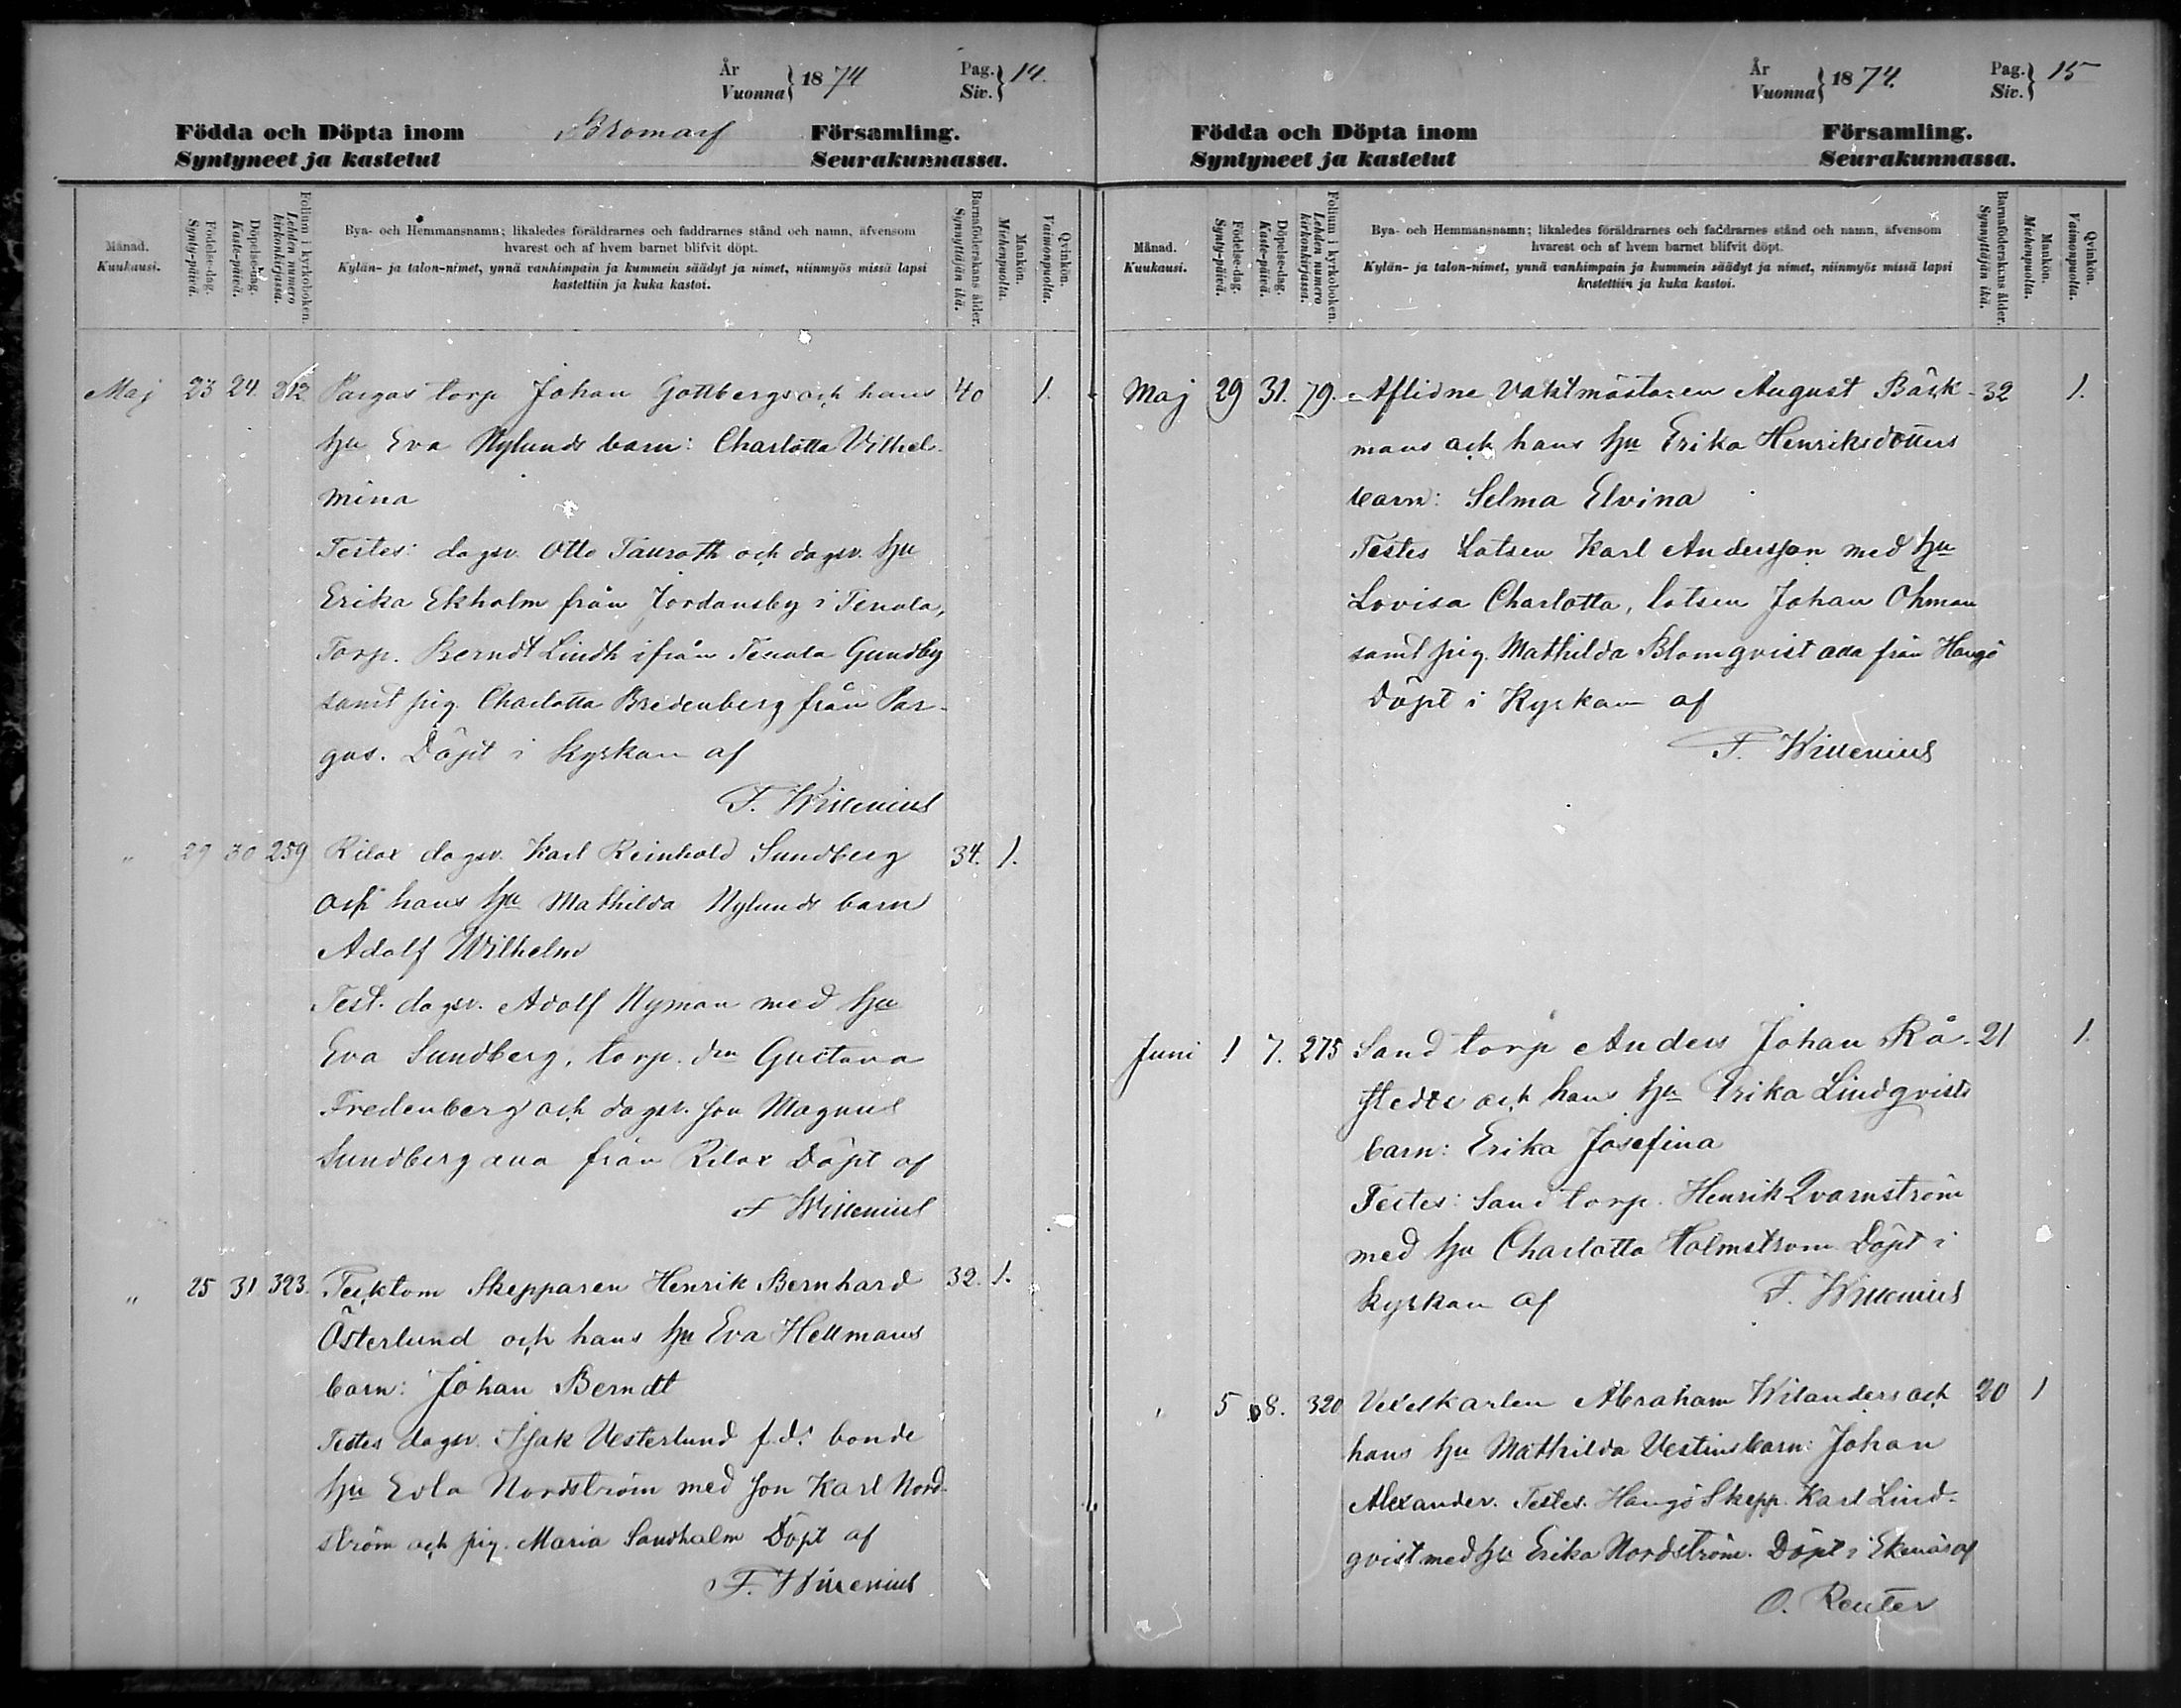 År
Vuonna } 1874
Pag.
Siv. } 14.
Födda och Döpta inom Bromarf Församling.
Syntyneet ja kastetut Seurakunnassa.
Månad.
Kuukausi.
Födelse-dag.
Synty-päivä.
Döpelse-dag.
Kaste-päivä.
Folium i kyrkoboken.
Lehden numero
kirkonkirjassa.
Bya- och Hemmansnamn; likaledes föräldrarnes och faddrarnes stånd och namn, äfvensom
hvarest och af hvem barnet blifvit döpt.
Kylän- ja talon-nimet, ynnä vanhimpain ja kummein säädyt ja nimet, niinmyös missä lapsi
kastettiin ja kuka kastoi.
Barnaföderskans ålder.
Synnyttäjän ikä.
Mankön.
Miehenpuolta.
Qvinkön.
Vaimonpuolta.
Maj 23 24. 212 Pargas torp Johan Gottbergs och hans 40 1.
hu Eva Nylunds barn: Charlotta Vilhel-
mina
Testes: dagsv. Otto Tauroth och dagsv. hu
Erika Ekholm från Jordansby i Tenala,
Torp. Berndt Lindh ifrån Tenala Gundby
samt pig. Charlotta Bredenberg från Par-
gas. Döpt i kyrkan af
F. Willenius
" 29 30 259 Rilax dagsv. Karl Reinhold Sundberg 34. 1.
och hans hu Mathilda Nylunds barn
Adolf Wilhelm
Test. dagsv. Adolf Nyman med hu
Eva Sundberg, torp. dra Gustava
Fredenberg och dagsv. son Magnus
Sundberg ana från Rilax Döpt af
F Willenius
" 25 31 323. Tecktom Skepparen Henrik Bernhard 32. 1.
Österlund och hans hu Eva Hellmans
barn: Johan Berndt
Testes dagsv. Isak Vesterlund f.d. bonde
hu Evla Nordström med son Karl Nord-
ström och pig. Maria Sandholm Döpt af
F. Willenius
År
Vuonna } 1874.
Pag.
Siv. } 15
Födda och Döpta inom Församling.
Syntyneet ja kastetut Seurakunnassa.
Månad.
Kuukausi.
Födelse-dag.
Synty-päivä.
Döpelse-dag.
Kaste-päivä.
Folium i kyrkoboken.
Lehden numero
kirkonkirjassa.
Bya- och Hemmansnamn; likaledes föräldrarnes och faddrarnes stånd och namn, äfvensom
hvarest och af hvem barnet blifvit döpt.
Kylän- ja talon-nimet, ynnä vanhimpain ja kummein säädyt ja nimet, niinmyös missä lapsi
kastettiin ja kuka kastoi.
Barnaföderskans ålder.
Synnyttäjän ikä.
Mankön.
Miehenpuolta.
Qvinkön.
Vaimonpuolta.
Maj 29 31. 79. Aflidne Vaktmästaren August Bäck- 32 1.
mans och hans hu Erika Henriksdotters
barn: Selma Elvina
Testes Lotsen Karl Andersson med hu
Lovisa Charlotta, lotsen Johan Öhman
samt pig. Mathilda Blomqvist ada från Hangö
Döpt i Kyrkan af
F. Willenius
Juni 1 7. 275 Sand torp Anders Johan Rå- 21 1.
stedts och hans hu Erika Lindqvists
barn: Erika Josefina
Testes: Sand torp. Henrik Qvarnström
med hu Charlotta Holmstrom Döpt i
kyrkan af F. Willenius
" 5 8. 320 Vexelkarlen Abraham Wilanders och 20 1
hans hu Mathilda Vestins barn: Johan
Alexander. Testes. Hangö Skepp. Karl Lind-
qvist med hu Erika Nordström. Döpt i Ekenäs af
O. Reuter